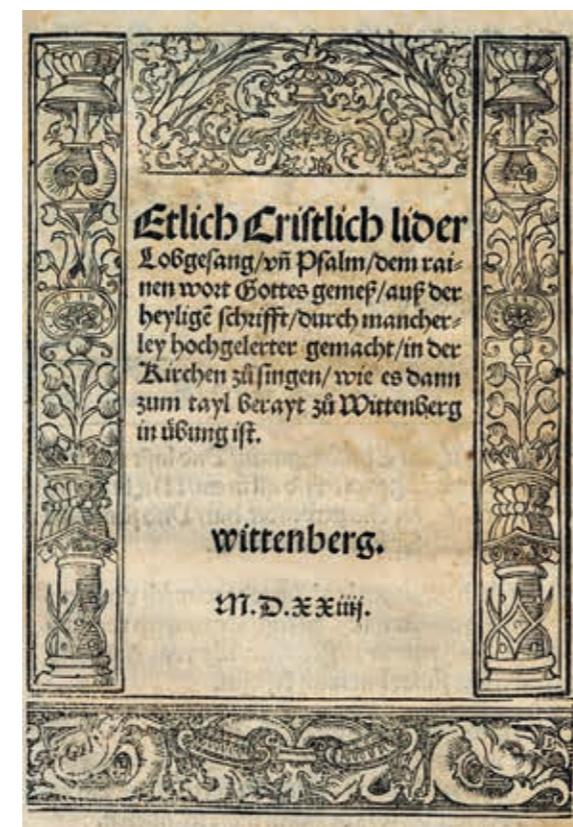 Etlich Cristlich lider
Lobgesang/vñ Psalm/dem rai⸗
nen wort Gottes gemeß/auß der
heyligẽ schrifft/durch mancher⸗
ley hochgelerter gemacht/in der
Kirchen zů singen/wie es dann
zum tayl berayt zů Wittenberg
in übung ist.
wittenberg.
M.D.XXiiij.